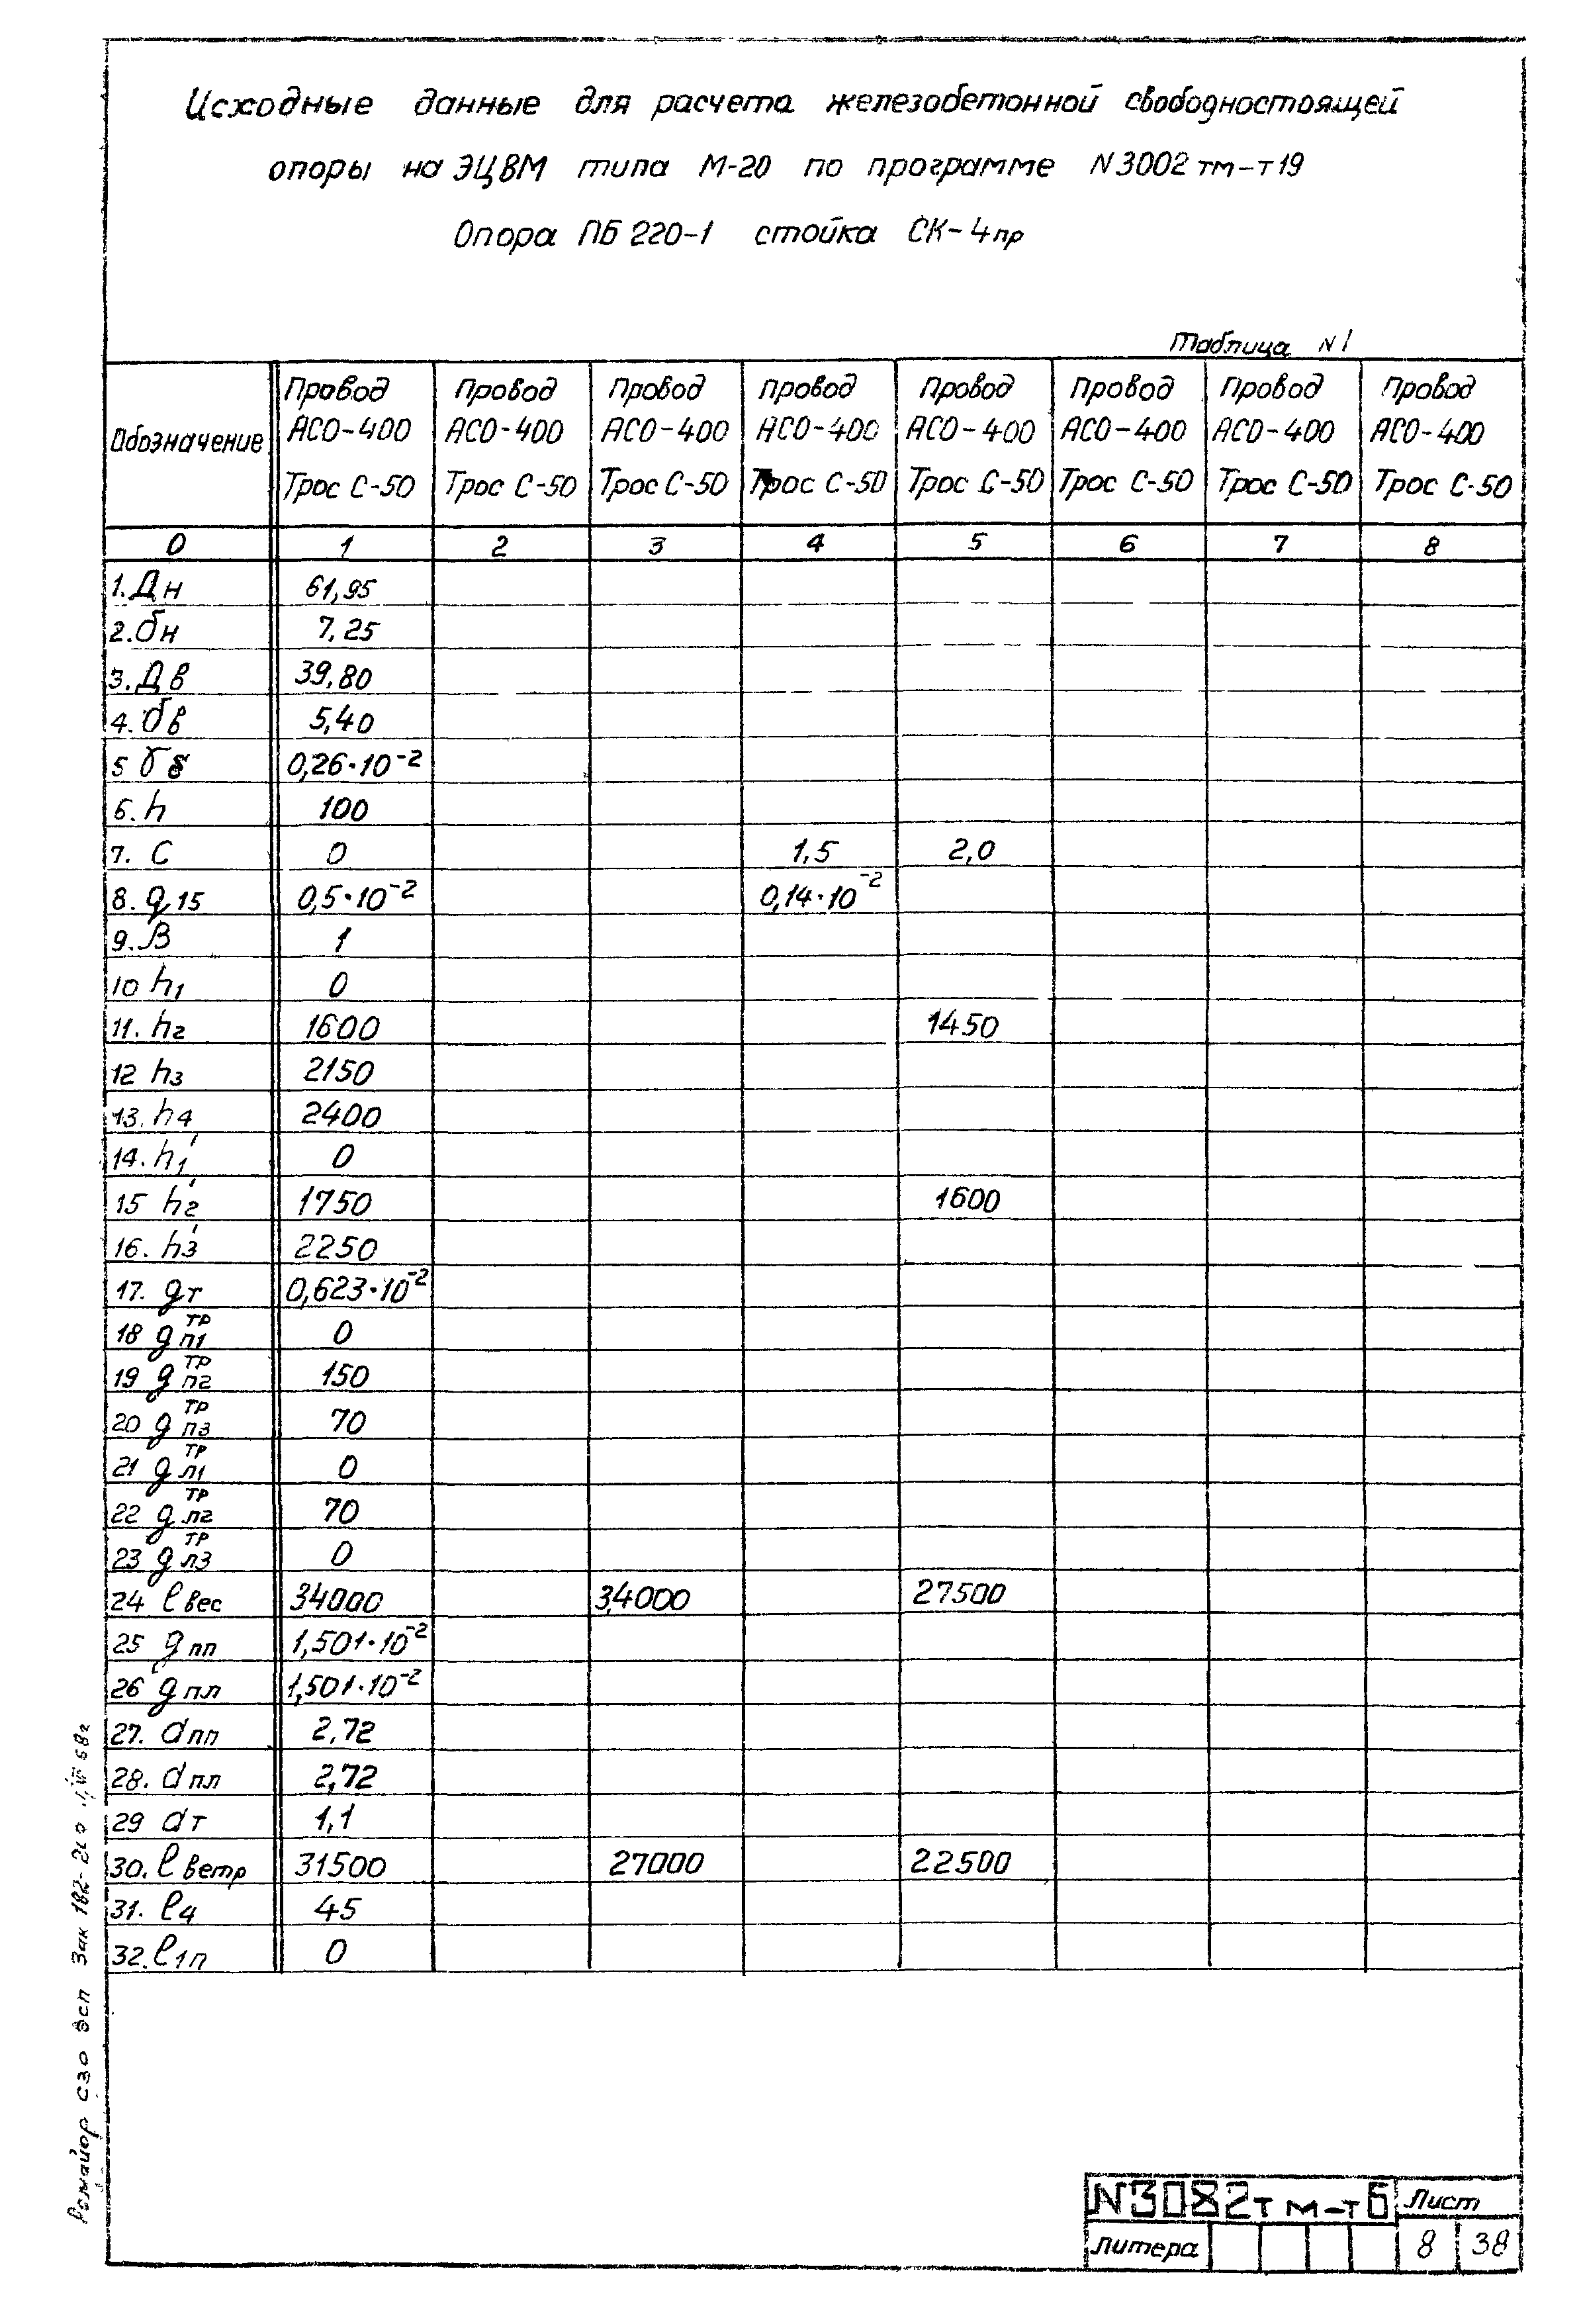 Исходные данные для расчета железобетонной свободностоящей
опоры на ЭЦВМ типа М-20 по программе N3002тм-т19
Опора ПБ 220-1 стойка СК-4пр
Таблица N1
Обозначение | Провод АСО-400 Трос С-50 | Провод АСО-400 Трос С-50 | Провод АСО-400 Трос С-50 | Провод АСО-400 Трос С-50 | Провод АСО-400 Трос С-50 | Провод АСО-400 Трос С-50 | Провод АСО-400 Трос С-50 | Провод АСО-400 Трос С-50
0 1 2 3 4 5 6 7 8
1. Дн 61,95
2. бн 7,25
3. Дв 39,80
4. бв 5,40
5 γб 0,26·10⁻²
6. h 100
7. С 0 1,5 2,0
8. q15 0,5·10⁻² 0,14·10⁻²
9. β 1
10 h1 0
11. h2 1600 1450
12 h3 2150
13. h4 2400
14. h1' 0
15 h2' 1750 1600
16. h3' 2250
17. gт 0,623·10⁻²
18 g п1 тр 0
19 g п2 тр 150
20 g п3 тр 70
21 g л1 тр 0
22 g л2 тр 70
23 g л3 тр 0
24 ℓ вес 34000 34000 27500
25 g пп 1,501·10⁻²
26 g пл 1,501·10⁻²
27. d пп 2,72
28. d пл 2,72
29 d т 1,1
30. ℓ ветр 31500 27000 22500
31. ℓ4 45
32. ℓ1п 0
Ромайор СЗО ЭСП Зак 182-
N3082тм-т6 Лист
Литера 8 38